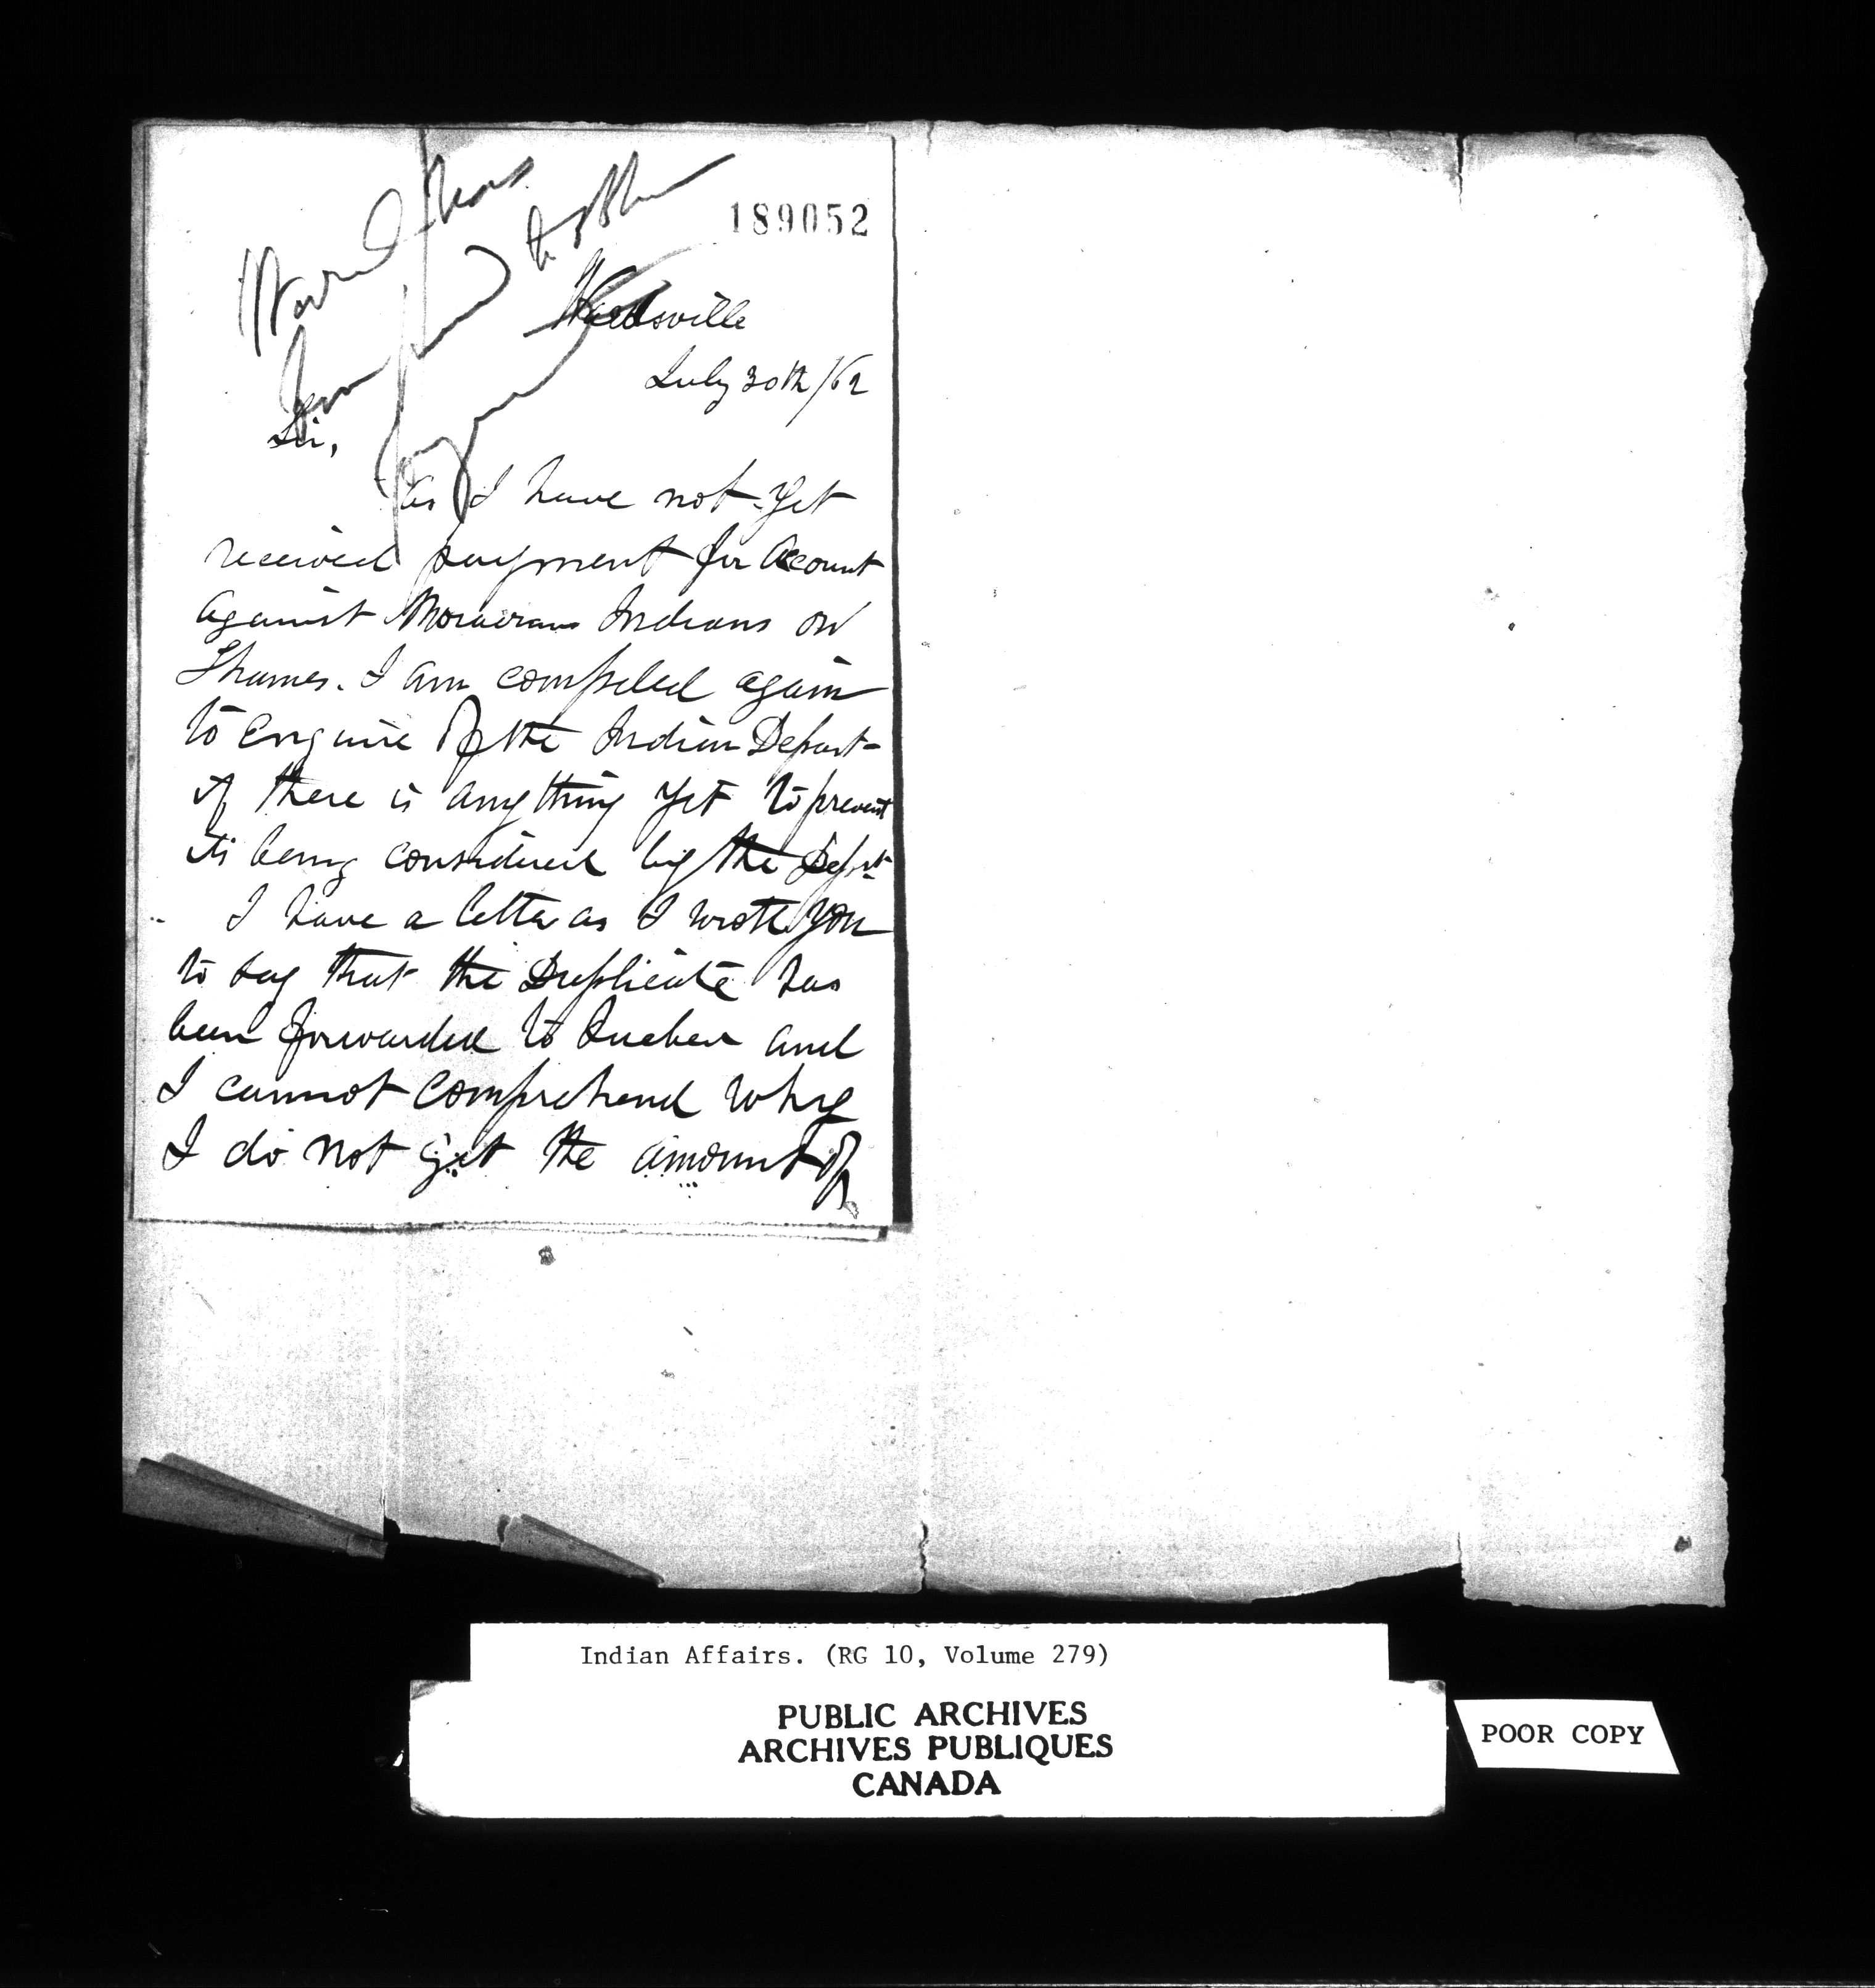 189052
Wardsville
July 30th/62
Sir,
As I have not yet
received payment for Account
against Moravian Indians on
Thames. I am compeled again
to enquire of the Indian Depart-
if there is anything yet to prevent
its being considered by the Dept
I have a letter as I wrote you
to say that the Duplicate has
been forwarded to Quebec and
I cannot comprehend why
I do not get the amount of
Indian Affairs. (RG 10, Volume 279)
PUBLIC ARCHIVES
ARCHIVES PUBLIQUES
CANADA
POOR COPY